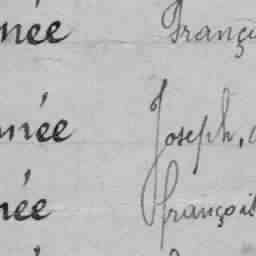 née Franç
née Joseph,
née François